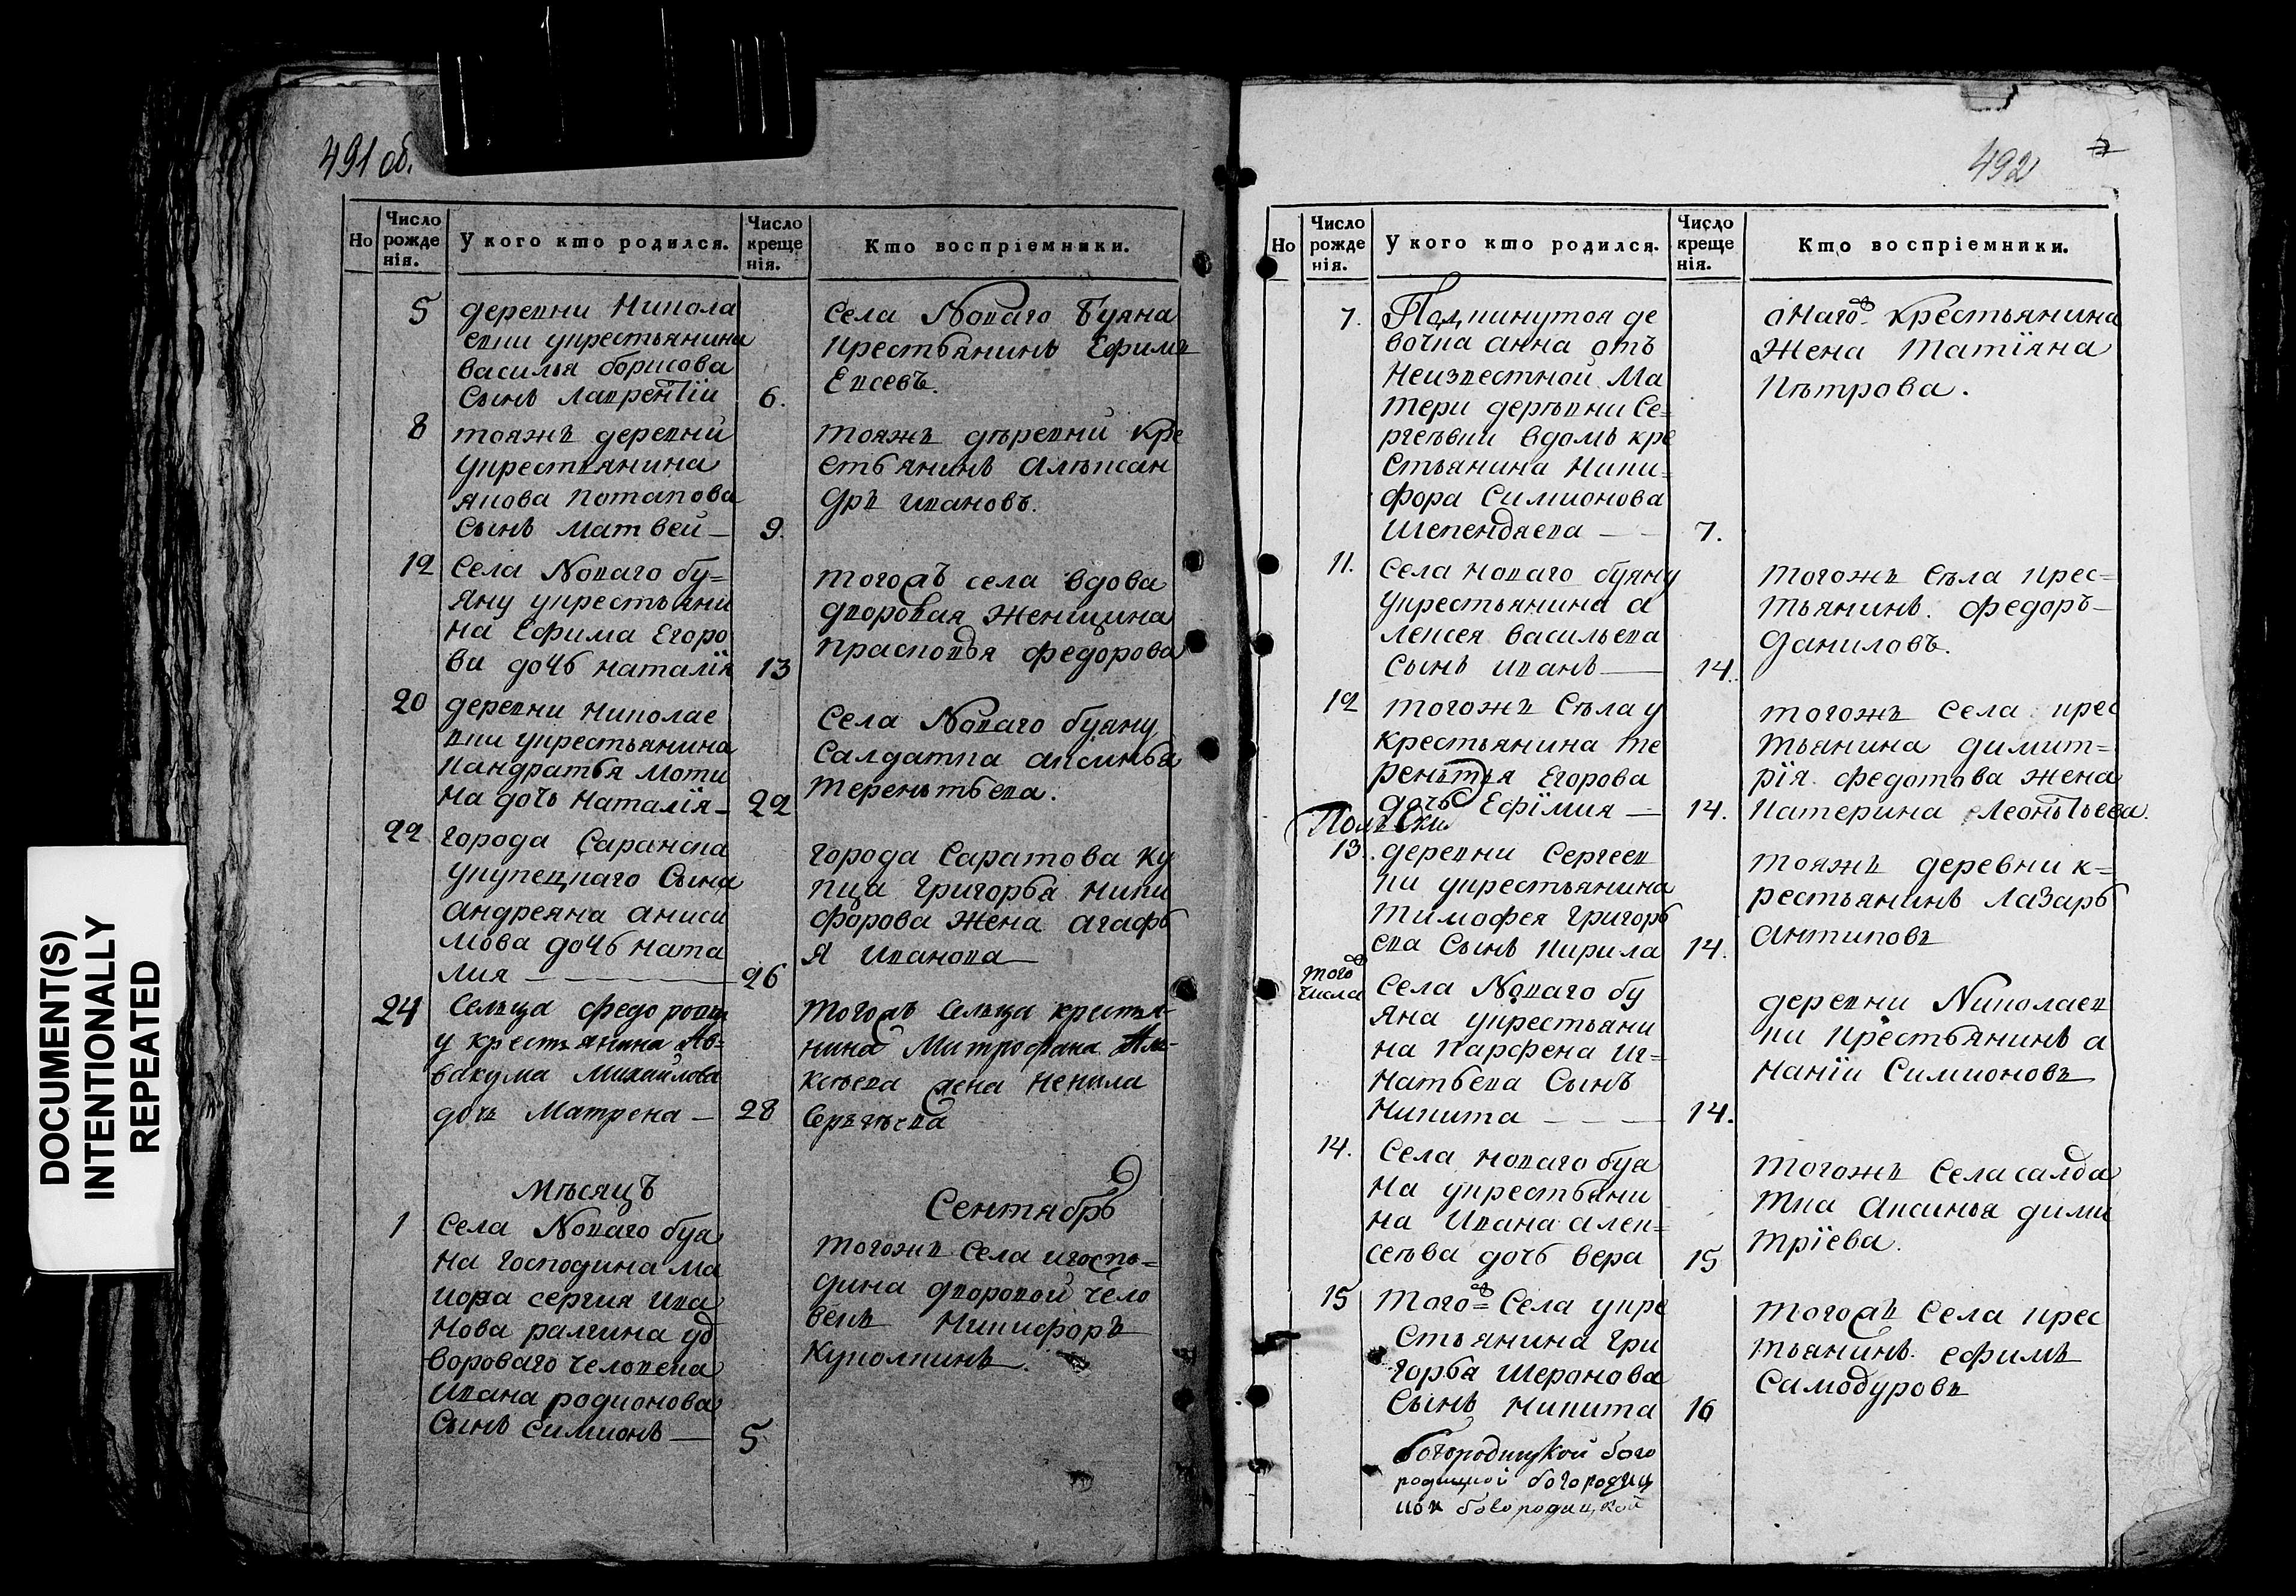 491 об.
Но
Число рожде нія.
У кого кто родился.
Число креще нія.
Кто воспріемники.
5 деревни Никола
евки укрестьянина
василья борисова
Сынъ лаврентіи 6.
Села Новаго Буяна
крестьянинъ Ефимъ
Евсевъ.
8 тояжъ деревни
укрестьянина
якова потапова
Сынъ матвей — 9.
тояжъ дѣревни кре
стьянинъ алѣксан
дръ ивановъ.
12 Села Новаго бу=
яну укрестьяни
на Ефима Егоро
ви дочь наталія 13
тогожъ села вдова
дворовая женщина
прасковья федорова
20 деревни николае
вки укрестьянина
кандратья моти
на дочь наталія — 22
Села Новаго буяну
Салдатка аксинья
терентьева.
22 города Саранска
укупецкаго Сына
андреяна аниси
мова дочь ната
лия — 26
города Саратова ку
пца григорья ники
форова жена агафь
я иванова —
24 Сельца федоровки
у крестьянина Ав=
вакума Михайлова
дочь Матрена — 28
тогожъ сельца крестья-
нина Митрофана Але-
ксѣева жена Ненила
Сергѣева
мѣсяцъ
Сентябрь
1 Села Новаго буя
на господина ма
иора сергия ива
нова ралгина уд
вороваго человека
ивана родионова
Сынъ Симионъ — 5
тогожъ села игоспо=
дина дворовой чело
векъ Никифоръ
куполкинъ.
492
Но
Число рожде нія.
У кого кто родился.
Число креще нія.
Кто воспріемники.
7. Подкинутоя де
вочка анна отъ
неизвестной ма
тери дерѣвни Се=
ргеѣвки вдомъ кре
стьянина Ники=
фора Симионова
Шепендяева — 7.
онаго крестьянина
жена татіяна
пѣтрова.
11. Села новаго буяну
укрестьянина а
лексея васильева
сынъ иванъ — 14.
тогожъ сѣла крес=
тьянинъ федоръ—
даниловъ.
12 тогожъ Сѣла у
крестьянина те
рентья егорова
дочь Ефімия — 14.
тогожъ села крес
тьянина димит=
рія федотова жена
катерина леонтьева.
13. деревни Сергеев
ки укрестьянина
тимофея григорь
ева Сынъ Кирила 14.
тояжъ деревни к=
рестьянинъ лазарь
антиповъ
того числа
Села Новаго бу
яна укрестьяни
на парфена иг=
натьева Сынъ
Никита — 14.
деревни Николаев
ки крестьянинъ а
наніи Симионовъ
14. Села новаго буя
на укрестьяни
на ивана алек=
сеѣва дочь вера 15
тогожъ Села салда
тка аксинья дими
тріева.
15 того= Села укре
стьянина гри
горья шеронова
Сынъ никита 16
тогожъ Села крес
тьянинъ ефимъ
Самодуровъ
богородицкой бого
родицкой богородиц
кой богородицкой
DOCUMENT(S)
INTENTIONALLY
REPEATED